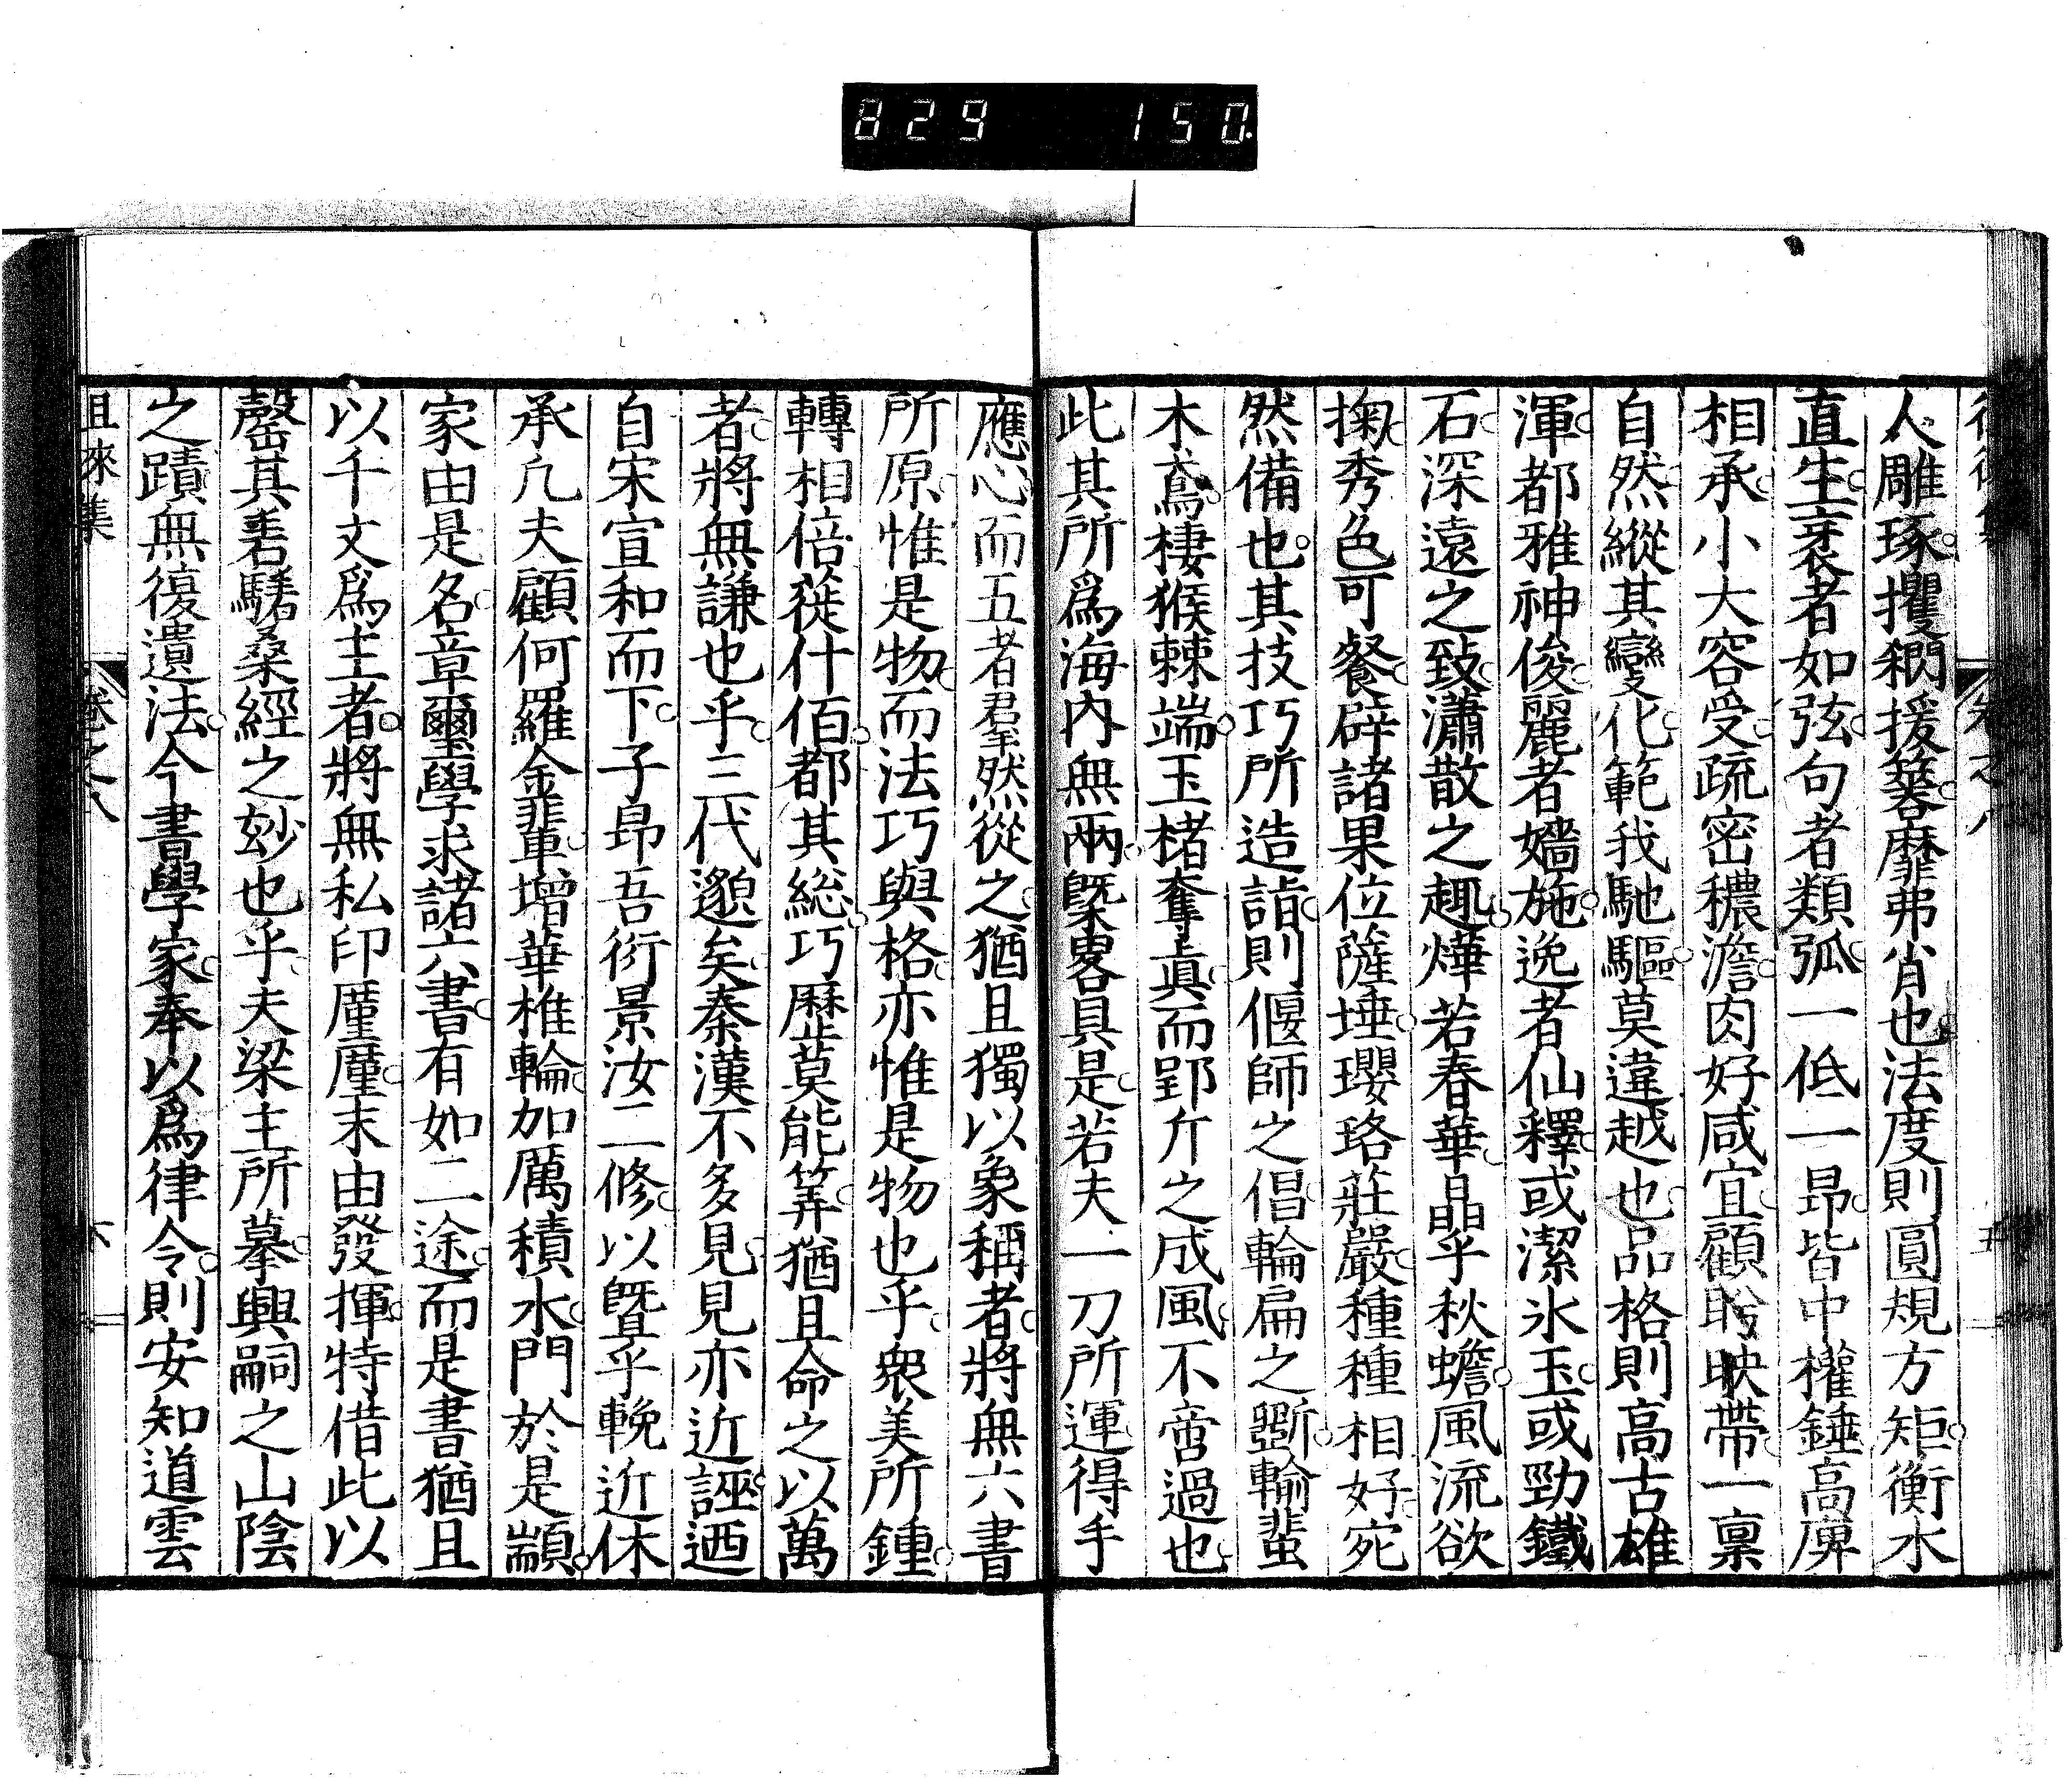 829 150.
人雕琢攫閷援簭靡弗肖也法度則圓規方矩衡水
直生衺者如弦句者類弧一低一昂皆中權錘高庳
相承小大容受疏密穠澹肉好咸宜顧盻映帶一稟
自然縱其變化範我馳驅莫違越也品格則高古雄
渾都雅神俊麗者嬙施逸者仙釋或潔氷玉或勁鐵
石深遠之致瀟散之趣燁若春華晶乎秋蟾風流欲
掬秀色可餐辟諸果位薩埵瓔珞莊嚴種種相好宛
然備也其技巧所造詣則偃師之倡輪扁之斵輸蜚
木鳶棲猴棘端玉楮奪眞而郢斤之成風不啻過也
此其所爲海內無兩槩畧具是若夫一刀所運得手
應心而五者羣然從之猶且獨以象稱者將無六書
所原惟是物而法巧與格亦惟是物也乎衆美所鍾
轉相倍蓰什佰都其総巧曆莫能筭猶且命之以萬
者將無謙也乎三代邈矣秦漢不多見見亦近誣迺
自宋宣和而下子昂吾衍景汝二修以曁乎輓近休
承凢夫顧何羅金輩增華椎輪加厲積水門於是顓
家由是名章璽學求諸六書有如二途而是書猶且
以千文爲主者將無私印厪厪末由發揮特借此以
罄其碁驕桑經之玅也乎夫梁主所摹興嗣之山陰
之蹟無復遺法今書學家奉以爲律令則安知道雲
徂徠集 卷之八 六